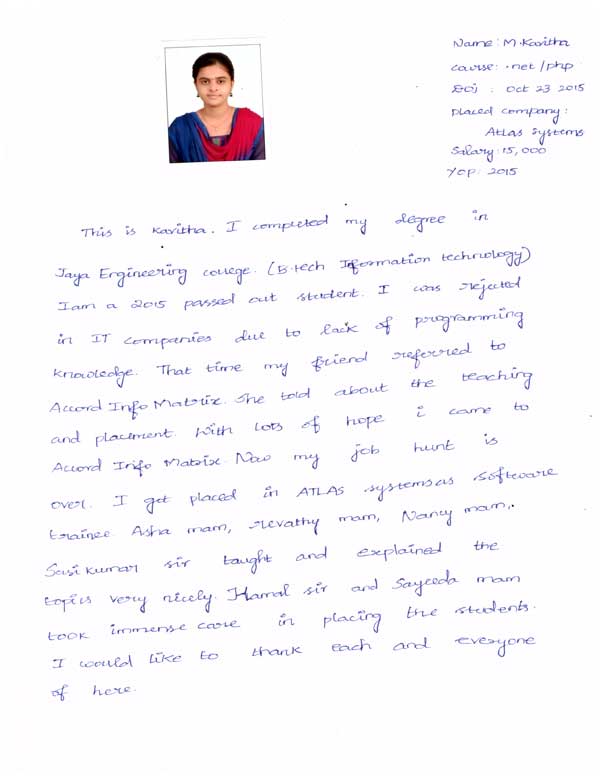 Name: M.Kavitha
Course: .net/php
DOJ : Oct 23 2015
Placed company:
Atlas Systems
Salary: 15,000
YOP: 2015
This is Kavitha. I completed my degree in
Jaya Engineering college. (B.tech Information technology)
I am a 2015 passed out student. I was rejected
in IT companies due to lack of programming
knowledge. That time my friend referred to
Accord Info Matrix. She told about the teaching
and placement. With lots of hope i came to
Accord Info Matrix. Now my job hunt is
over. I get placed in ATLAS systems as software
trainee. Asha mam, revathy mam, Nancy mam,
Sasi kumar sir taught and explained the
topics very nicely. Hamal sir and Sayeeda mam
took immense care in placing the students.
I would like to thank each and everyone
of here.